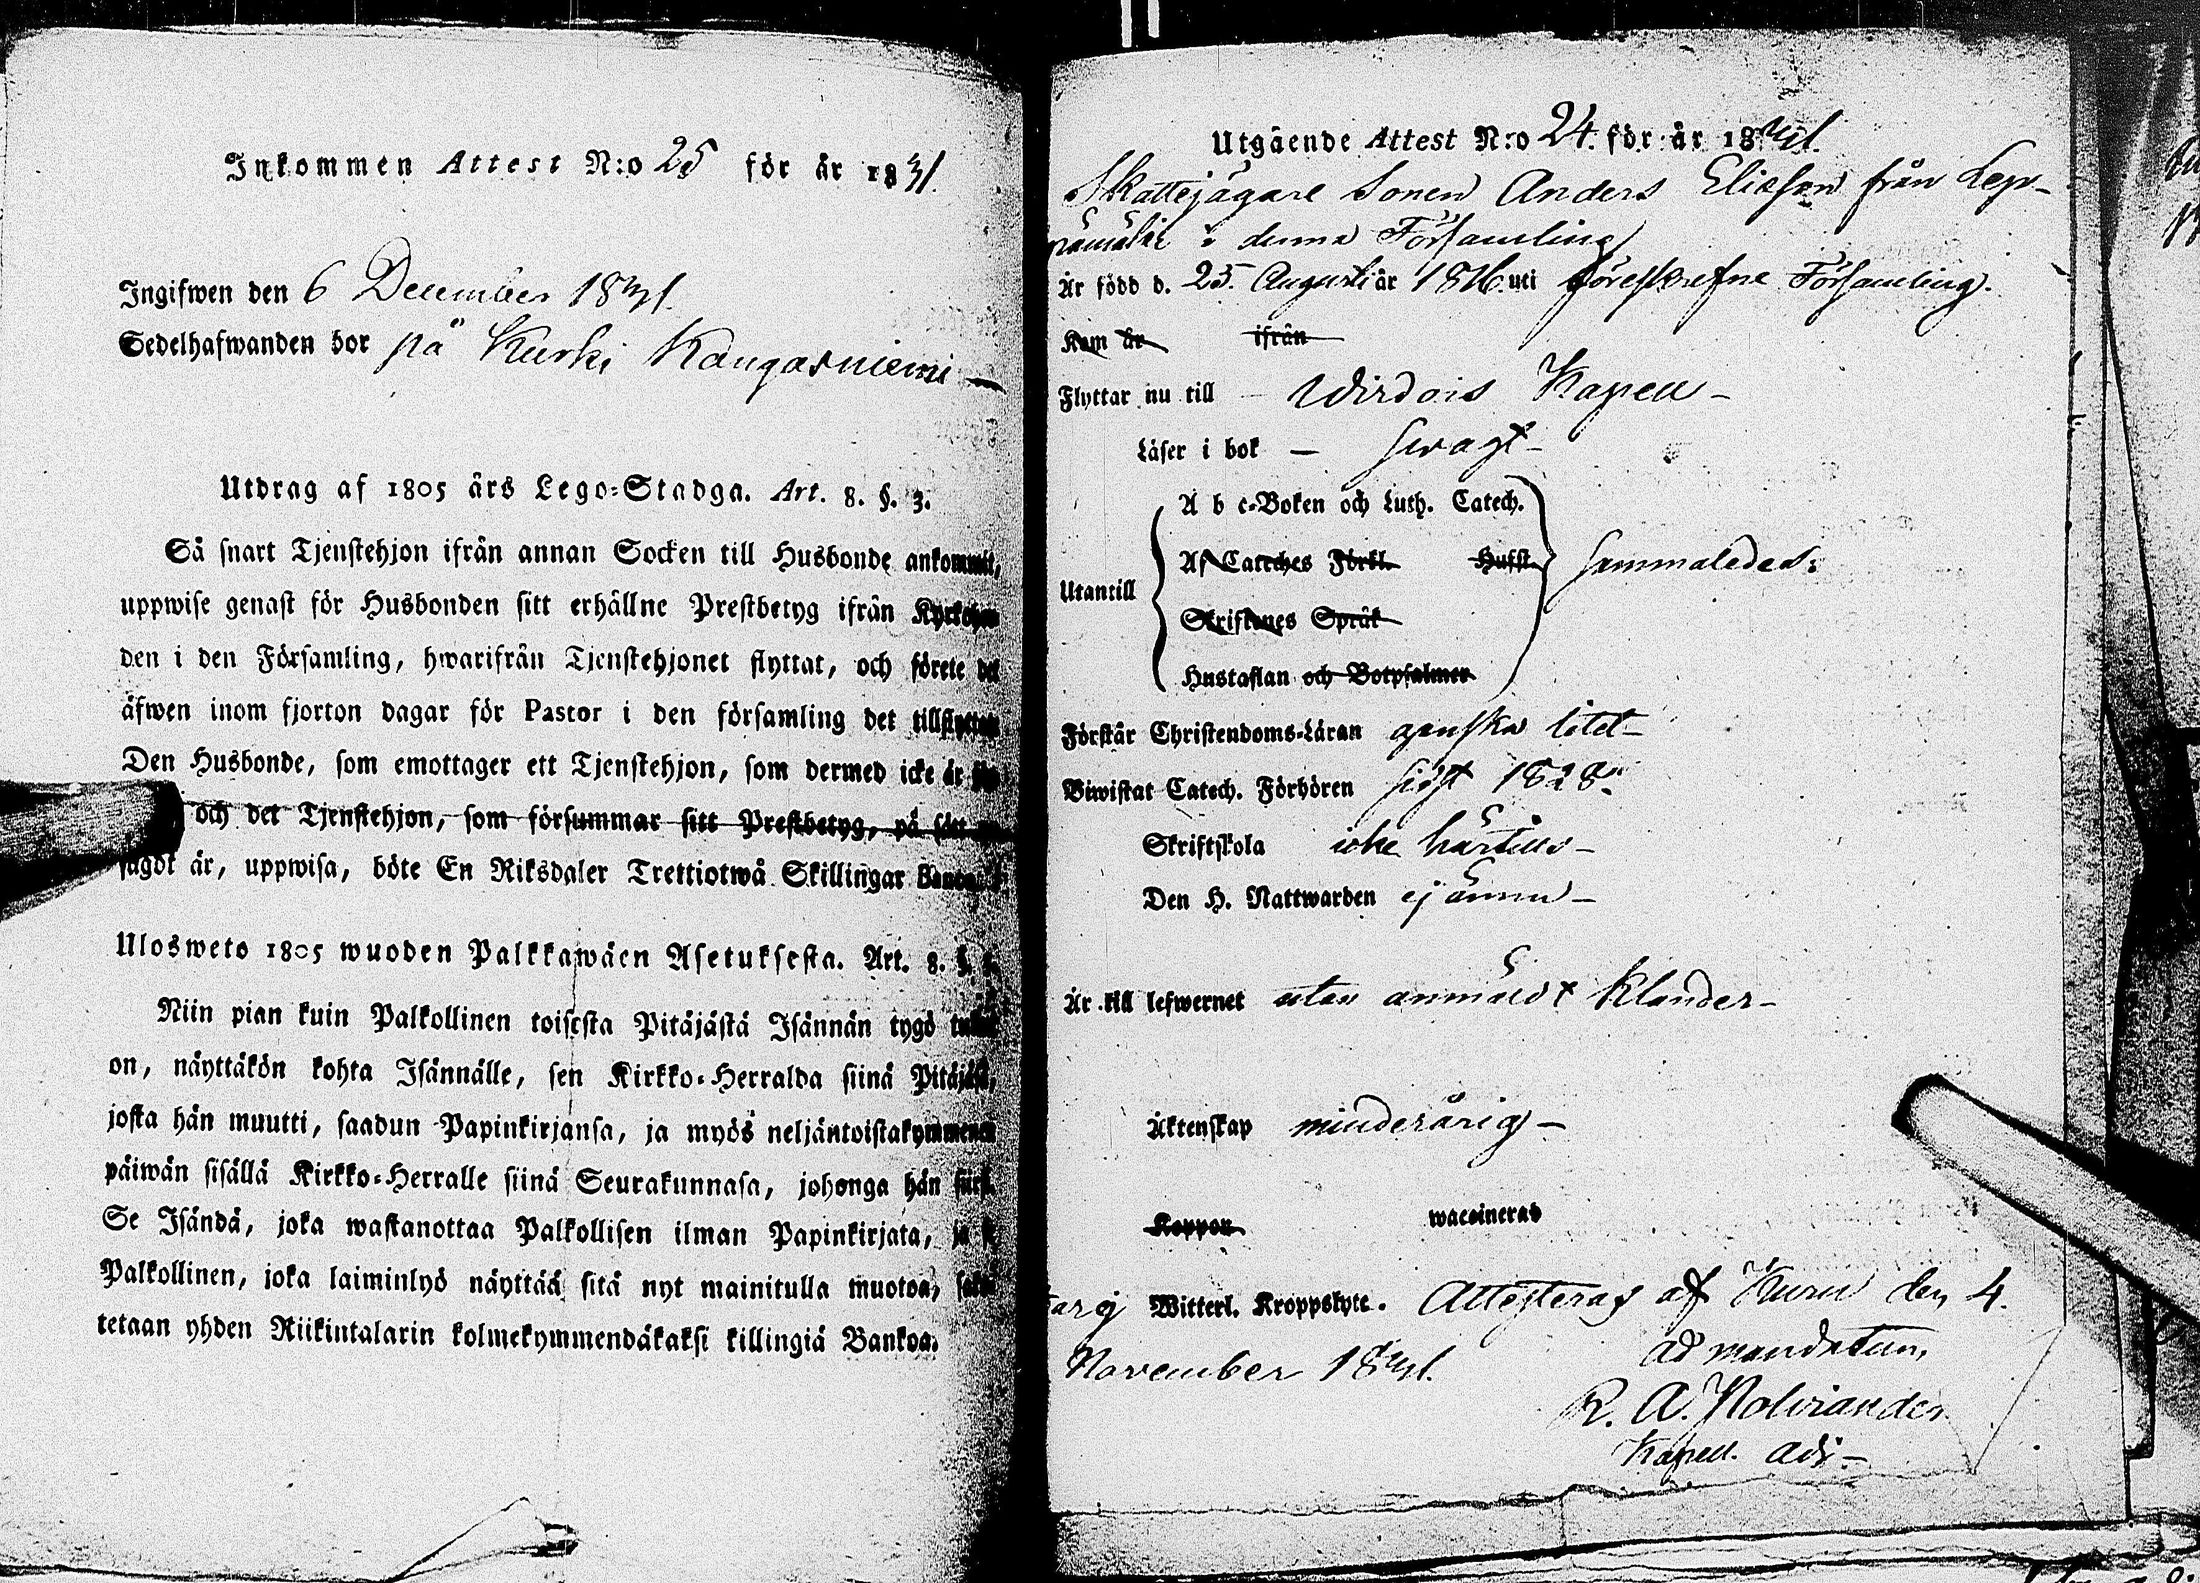 Inkommen Attest N:o 25 för år 1831.
Ingifwen den 6 December 1831.
Sedelhafwanden bor på Kurki Kangasniemi
Utdrag af 1805 års Lego-Stadga. Art. 8. §. 3.
Så snart Tjenstehjon ifrån annan Socken till Husbonde ankommit,
uppwise genast för Husbonden sitt erhållne Prestbetyg ifrån
den i den Församling, hwarifrån Tjenstehjonet flyttat, och förete det
äfwen inom fjorton dagar för Pastor i den församling det
Den Husbonde, som emottager ett Tjenstehjon, som dermed icke är
och det Tjenstehjon, som försummar sitt Prestbetyg, på sätt
sagdt är, uppwisa, böte En Riksdaler Trettiotwå Skillingar Banco.
Ulosweto 1805 wuoden Palkkawäen Asetuksesta. Art. 8. §.
Niin pian kuin Palkollinen toisesta Pitäjästä Isännän tygö
on, näyttäkön kohta Isännälle, sen Kirkko-Herralda siinä Pitäjäs,
josta hän muutti, saadun Papinkirjansa, ja myös neljäntoistakymmenen
päiwän sisällä Kirkko-Herralle siinä Seurakunnasa, johonga hän
Se Isändä, joka wastanottaa Palkollisen ilman Papinkirjata, ja se
Palkollinen, joka laiminlyö näyttää sitä nyt mainitulla muotoa,
tetaan yhden Riikintalarin kolmekymmendäkaksi killingiä Bankoa.
Utgående Attest N:o 24. för år 1831.
Skattejägare Sonen Anders Eliasson från Lep-
i denna Församling
Är född d. 25. Augusti år 1816. uti föreskrefne Församling.
Kom år ifrån
Flyttar nu till Wirdois Kapell
Läser i bok swagt
A b c-Boken och Luth. Catech.
Af Cateches Förkl. Hufst.
Utantill sammaledes:
Skriftenes Språk
Hustaflan och Botpsalmer
Förstår Christendoms-Läran ganska litet
Biwistat Catech. Förhören sist 1828.
Skriftskola icke härtills
Den H. Nattwarden ej ännu
Är till lefwernet utan anmäldt klander
Äktenskap minderårig
Koppor waccinerad
Witterl. Kroppslyte. Attesteras af Kuru den 4.
November 1831. ad mandatum,
R. A. Holvander
Kapell. adj.